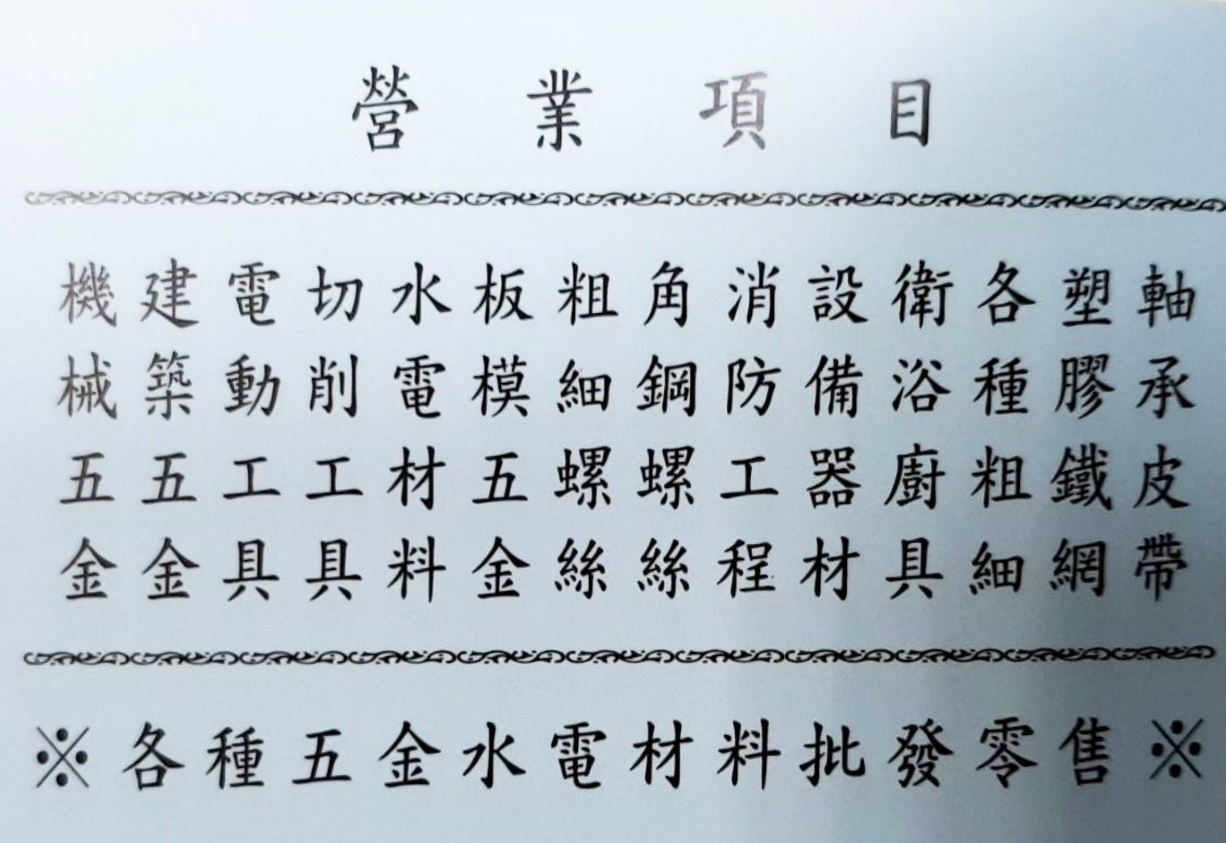 營業項目
機械五金
建築五金
電動工具
切削工具
水電材料
板模五金
粗細螺絲
角鋼螺絲
消防工程
設備器材
衛浴廚具
各種粗細
塑膠鐵網
軸承皮帶
※各種五金水電材料批發零售※